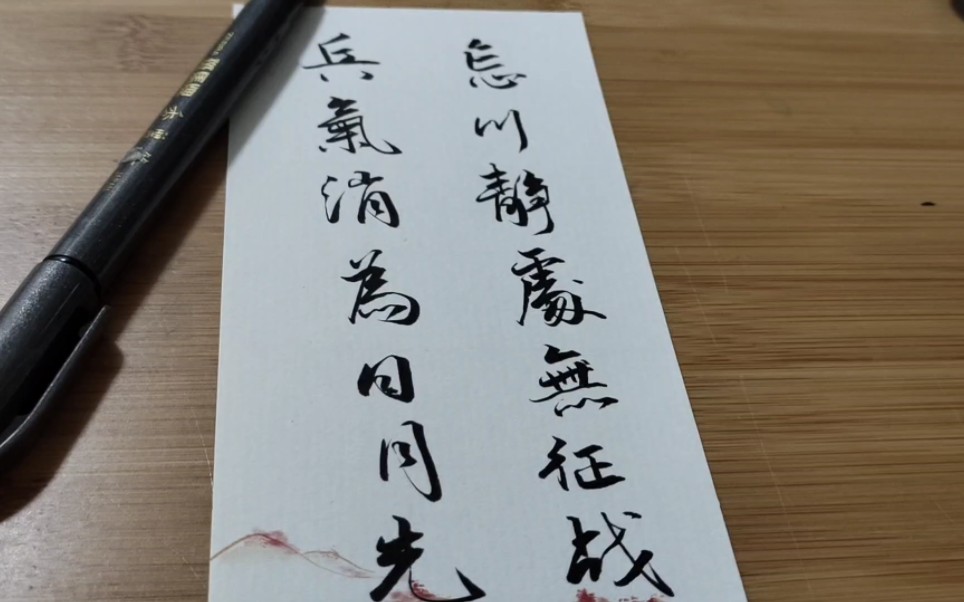 忘川靜處無征战
兵氣消為日月光